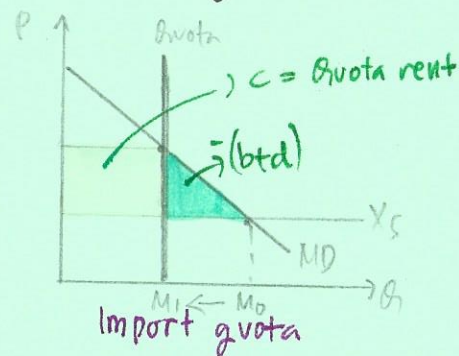 P
Quota
) C = Quota rent
-(b+d)
XS
MD
M1 ← M0
Q
Import quota